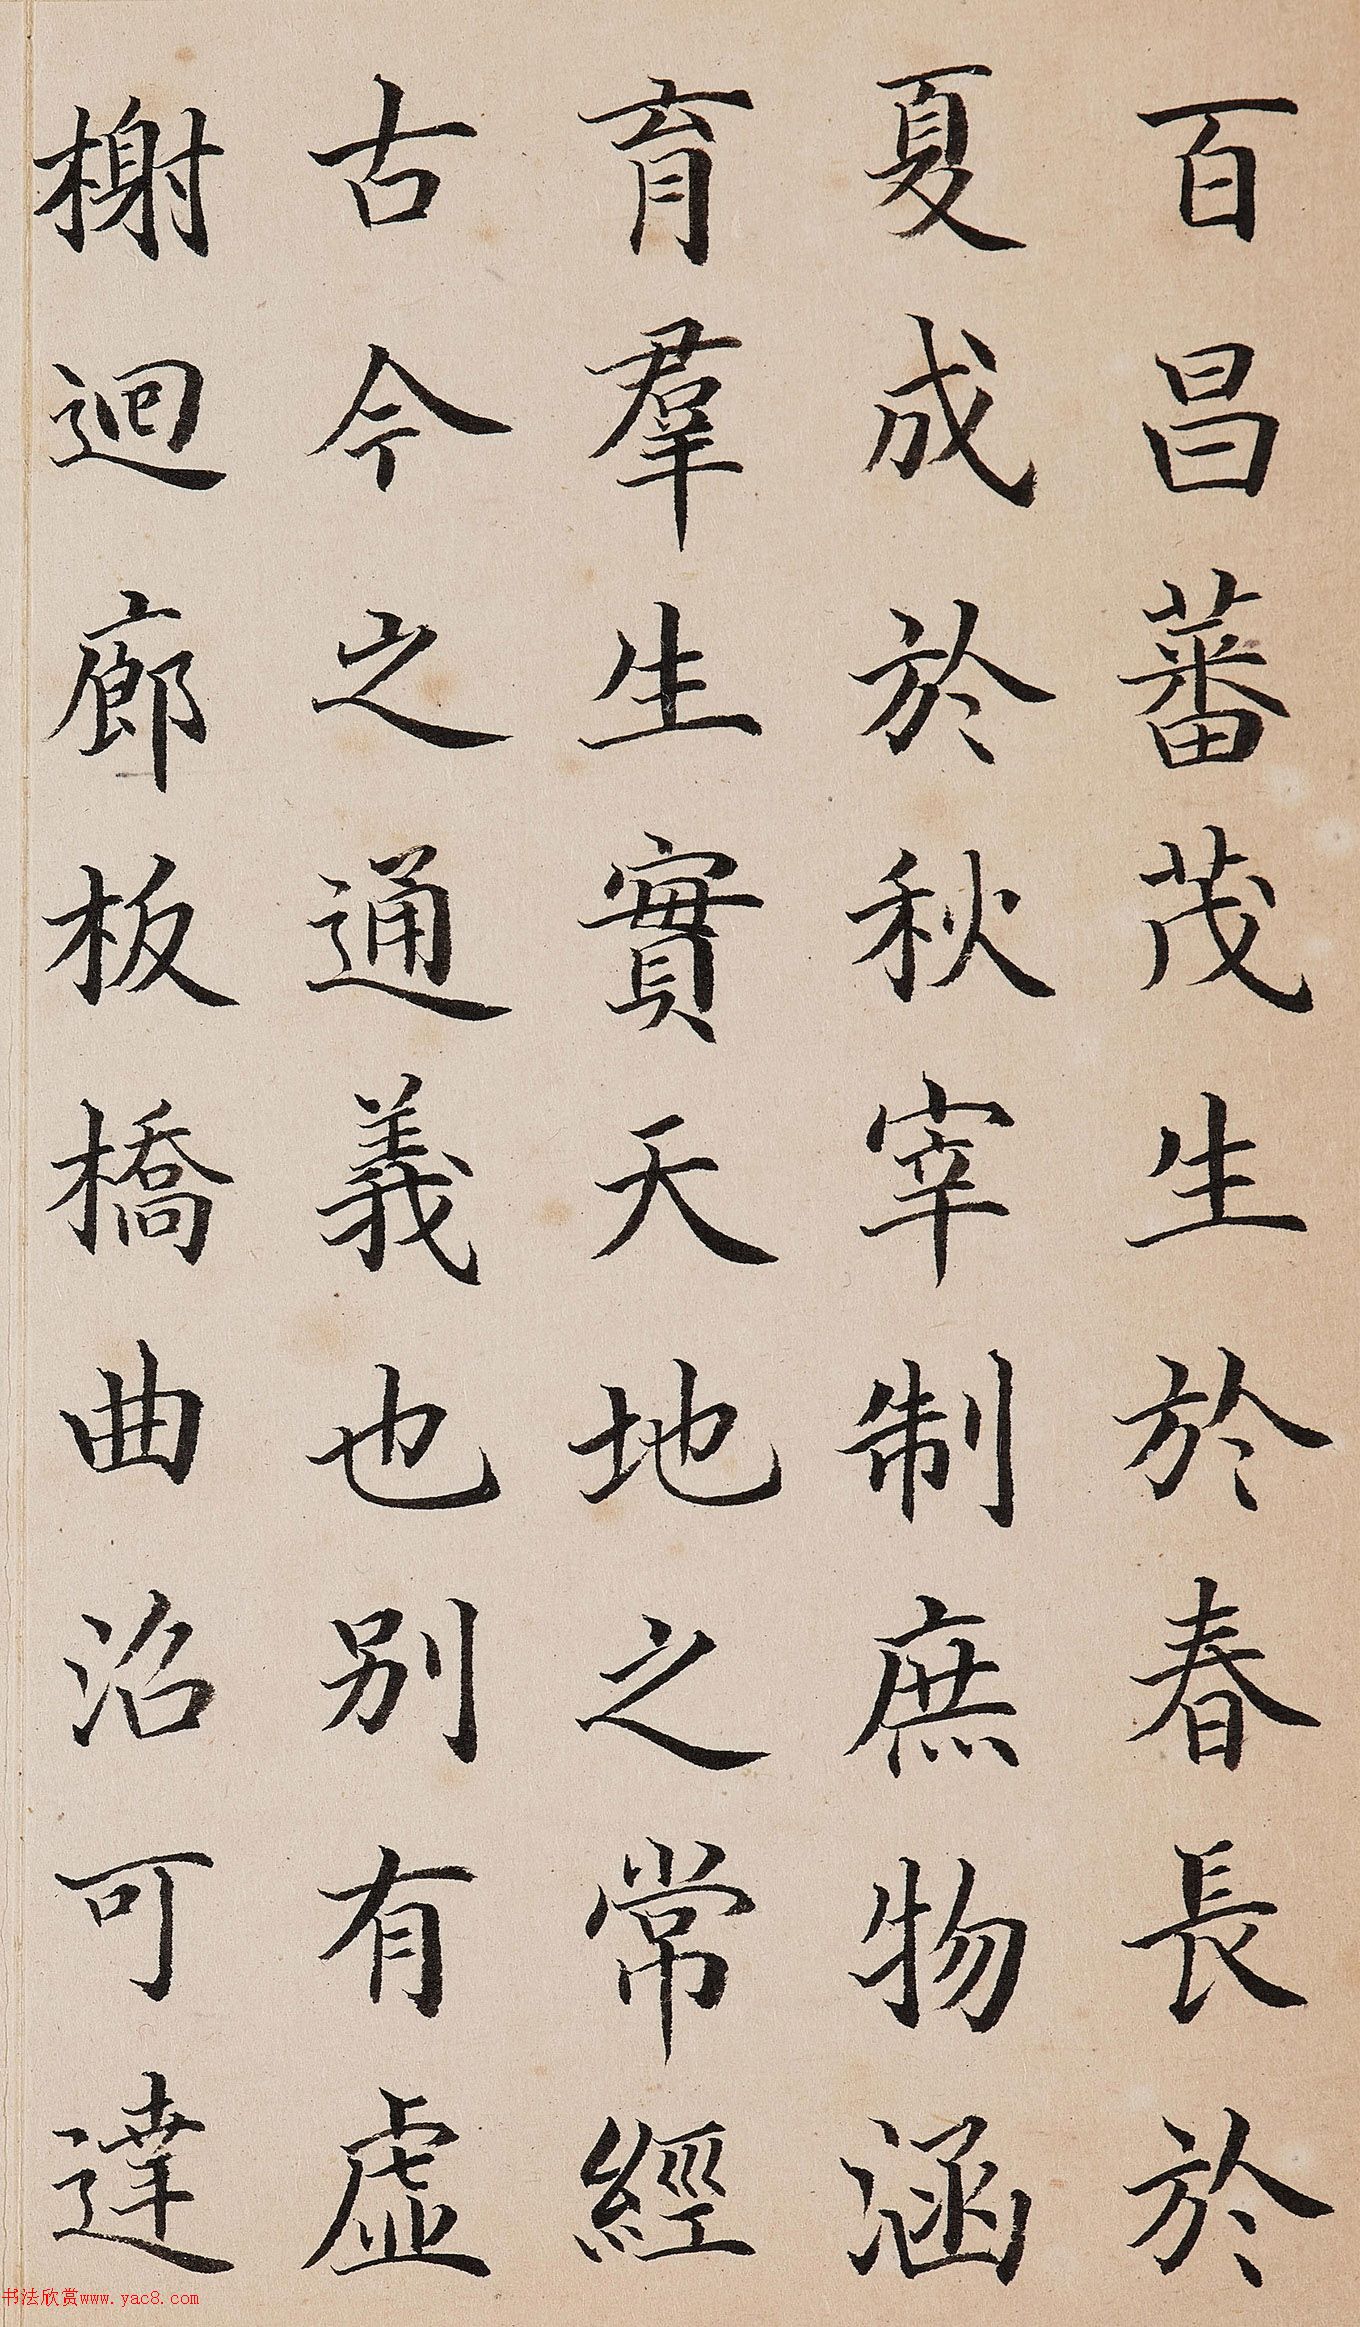 百昌蕃茂生於春長於
夏成於秋宰制庶物涵
育羣生實天地之常經
古今之通義也別有虛
榭迴廊板橋曲沼可達
书法欣赏www.yac8.com